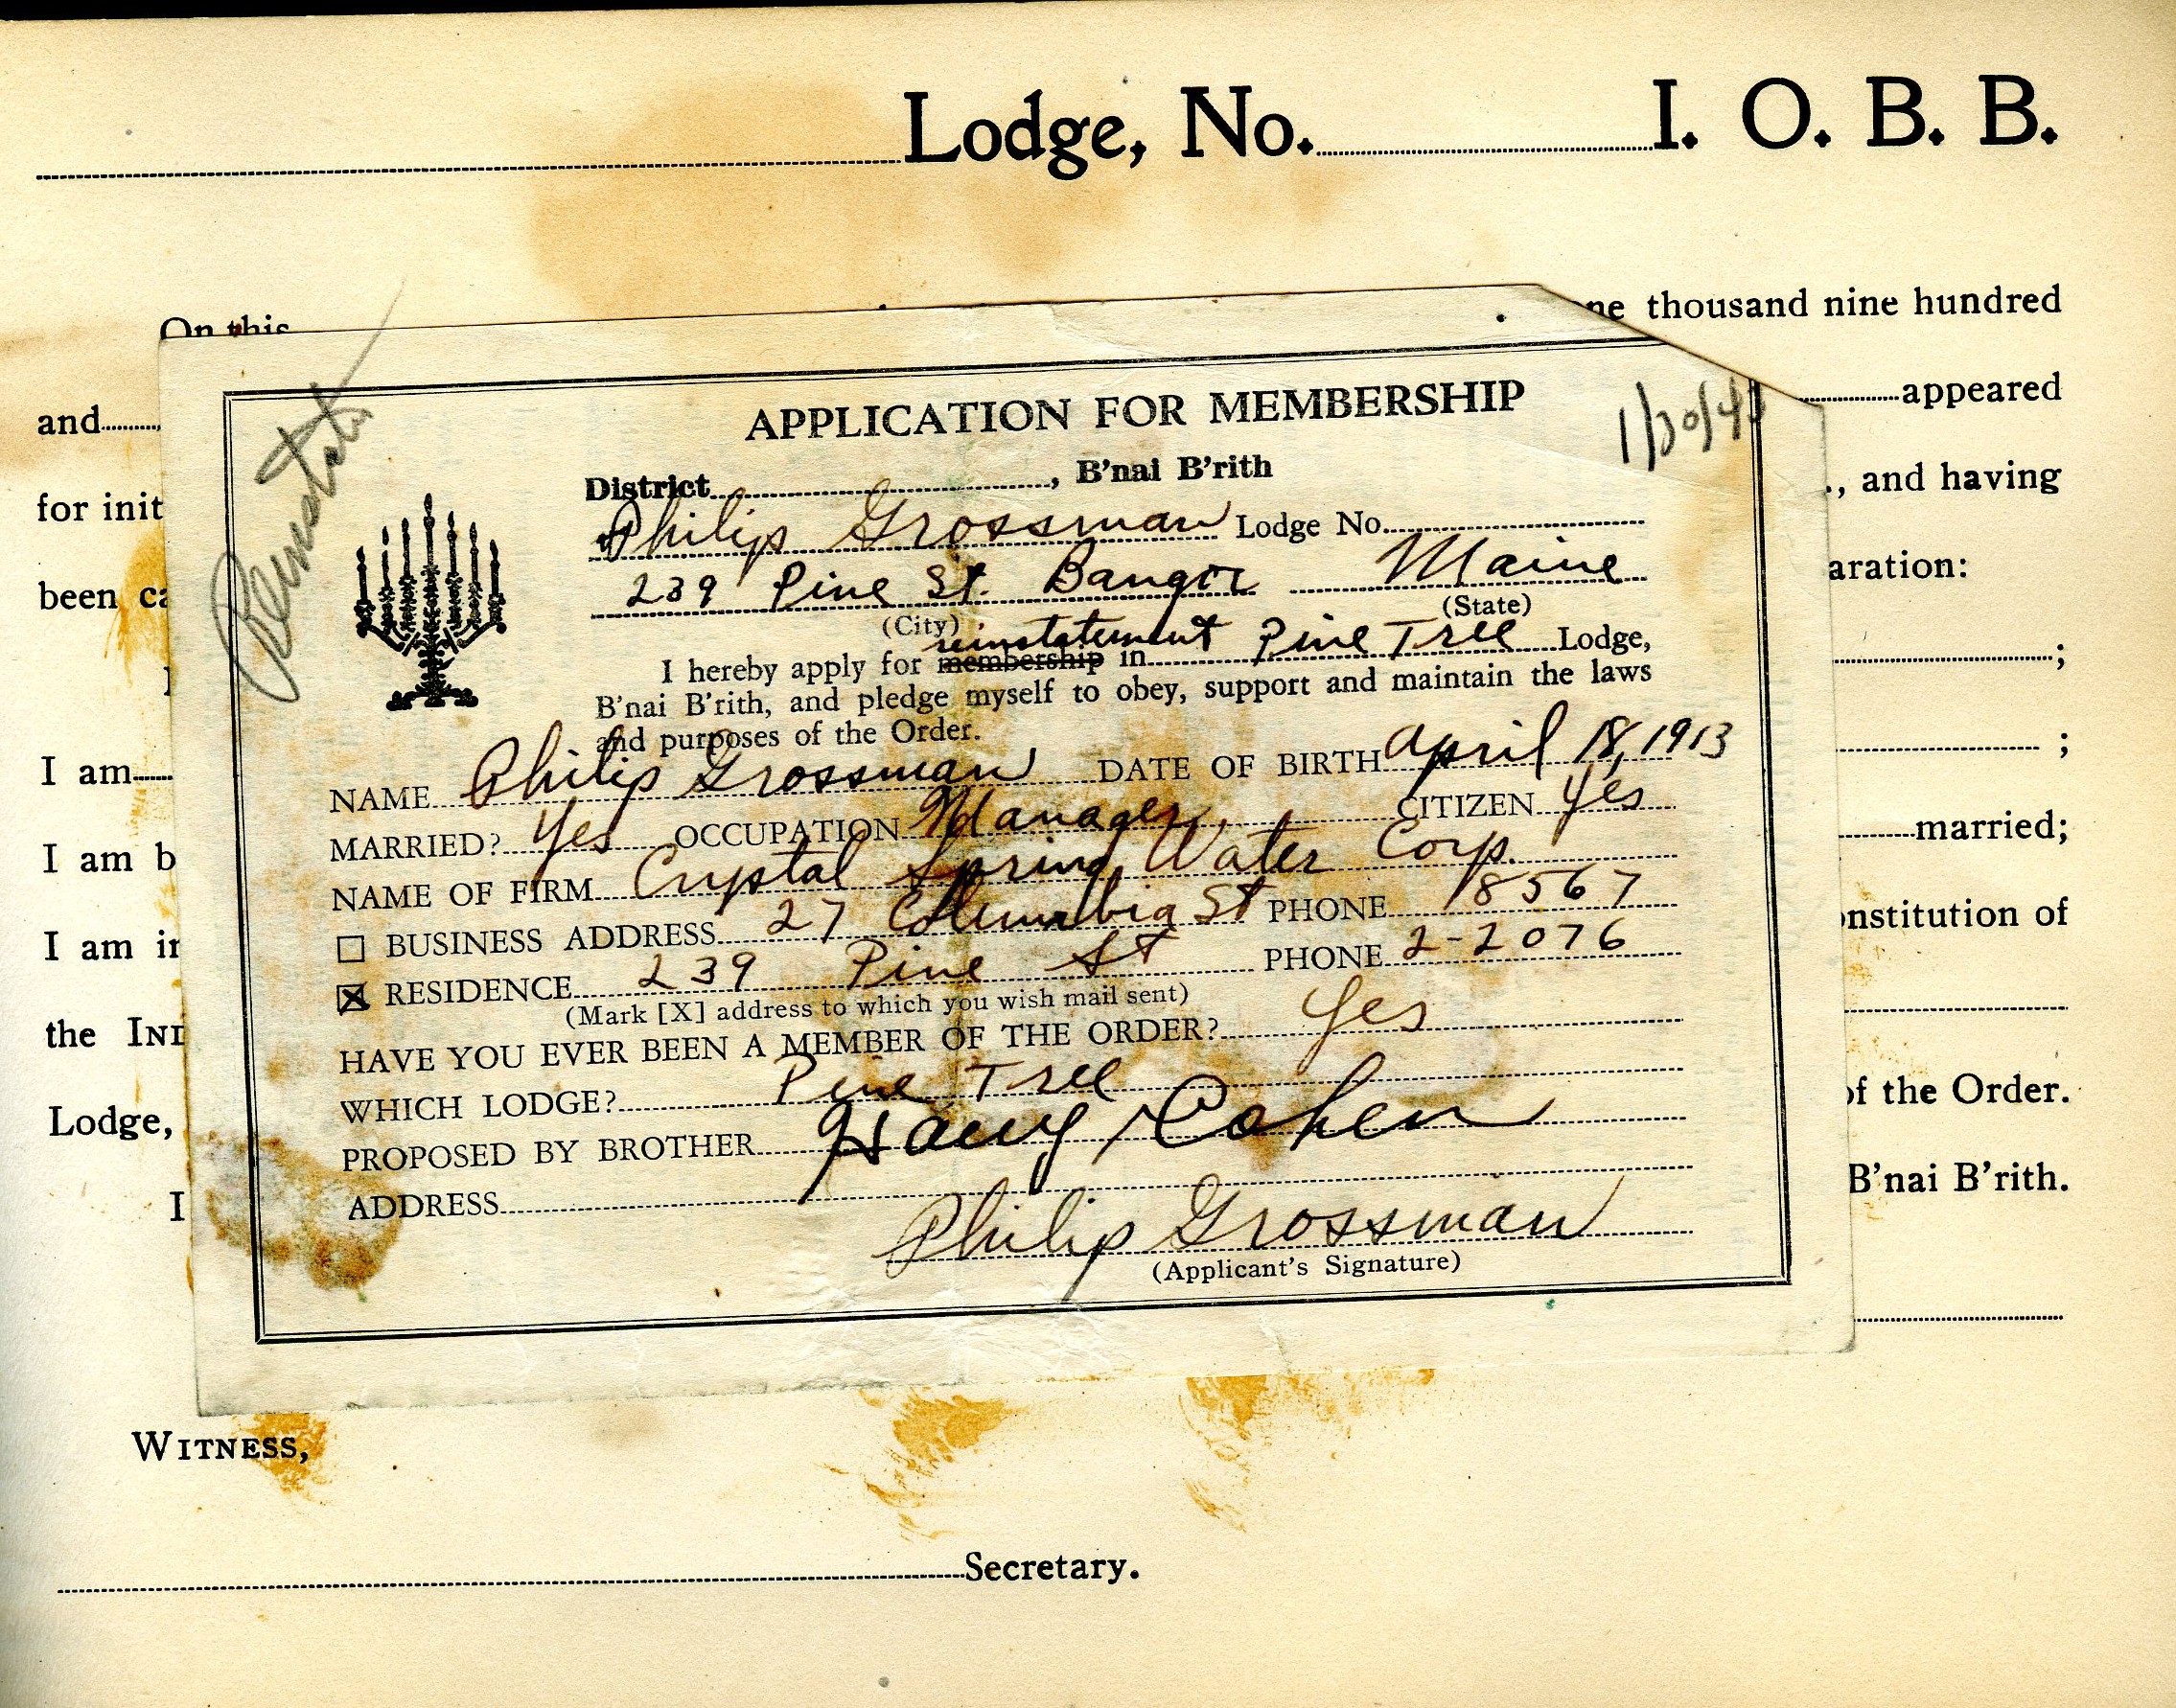 Lodge, No. I. O. B. B.
On this ne thousand nine hundred
and appeared
for init ., and having
been ca aration:
I ;
I am ;
I am b married;
I am in nstitution of
the IND
Lodge, of the Order.
I B'nai B'rith.
Reinstate
APPLICATION FOR MEMBERSHIP
District , B'nai B'rith
Philip Grossman Lodge No.
239 Pine St. Bangor Maine
(City) (State)
reinstatement
I hereby apply for membership in Pine Tree Lodge,
B'nai B'rith, and pledge myself to obey, support and maintain the laws
and purposes of the Order.
NAME Philip Grossman DATE OF BIRTH April 18, 1913
MARRIED? Yes OCCUPATION Manager CITIZEN Yes
NAME OF FIRM Crystal Spring Water Corp.
BUSINESS ADDRESS 27 Columbia St PHONE 8567
RESIDENCE 239 Pine St PHONE 2-2076
(Mark [X] address to which you wish mail sent)
HAVE YOU EVER BEEN A MEMBER OF THE ORDER? Yes
WHICH LODGE? Pine Tree
PROPOSED BY BROTHER Harry Cohen
ADDRESS
Philip Grossman
(Applicant's Signature)
WITNESS,
Secretary.